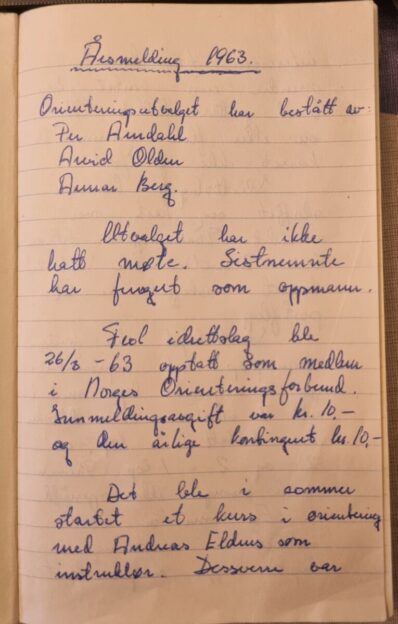 Årsmelding 1963.
Orienteringsutvalget har bestått av:
Per Amdahl
Arvid Olden
Annar Berg.
Utvalget har ikke
hatt møte. Sistnemnte
har fungert som oppmann.
Feol idrettslag ble
26/3 -63 opptatt som medlem
i Norges Orienteringsforbund.
Innmeldingsavgift var kr. 10,-
og den årlige kontingent kr. 10,-
Det ble i sommer
startet et kurs i orientering
med Andreas som
instruktør. Dessverre var